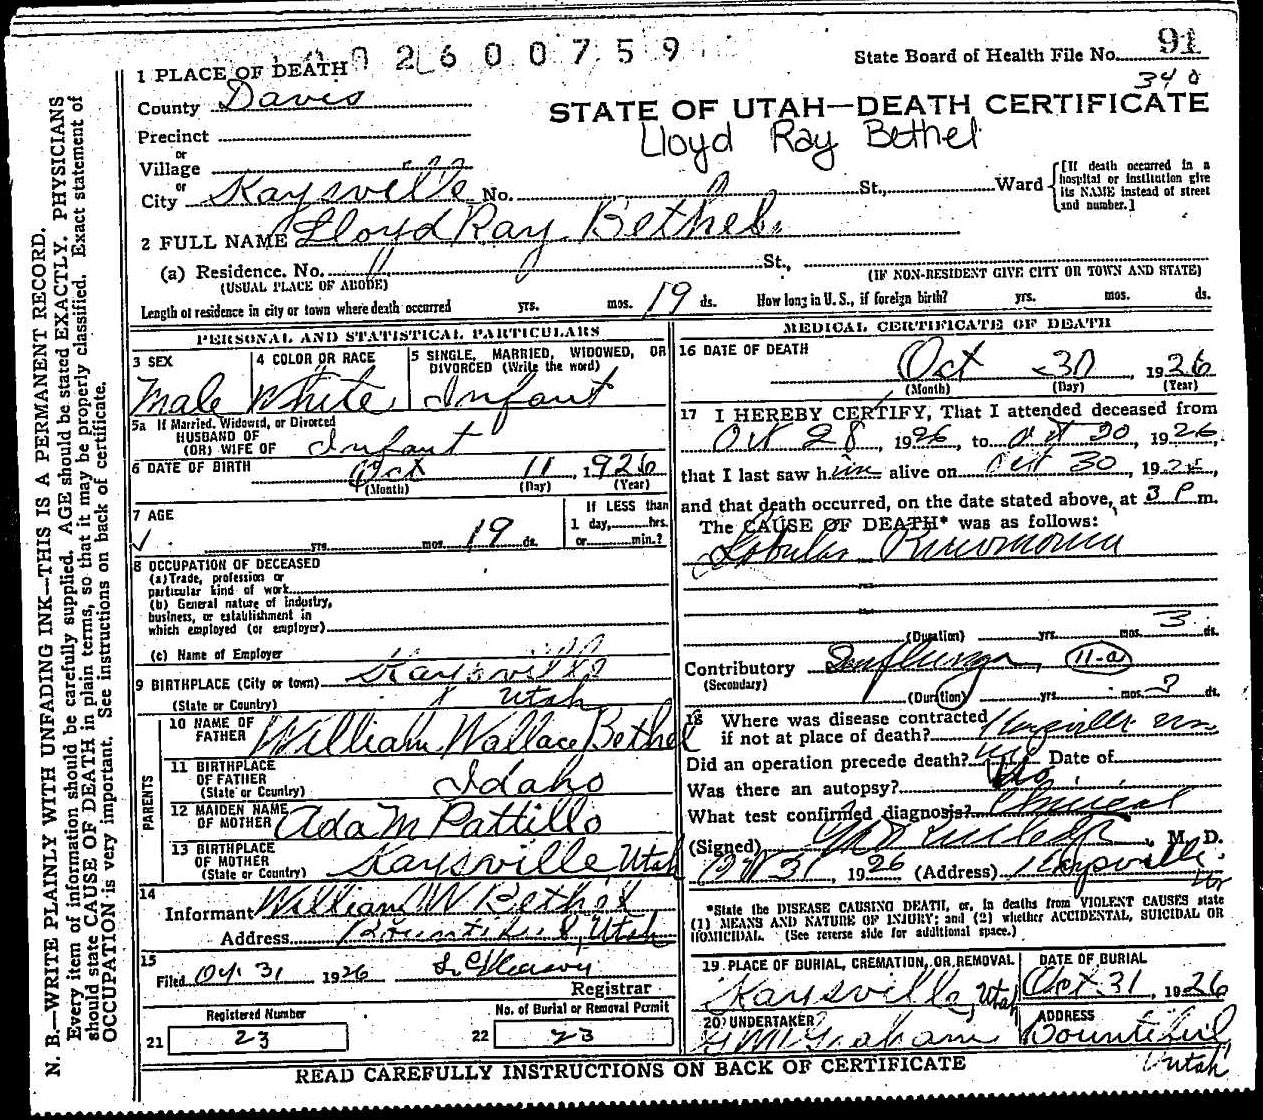 002600759
State Board of Health File No. 91
340
1 PLACE OF DEATH
County Davis
STATE OF UTAH—DEATH CERTIFICATE
Lloyd Ray Bethel
Precinct
or
Village
or
City Kaysville No. St., Ward
[If death occurred in a hospital or institution give its NAME instead of street and number.]
2 FULL NAME Lloyd Ray Bethel
(a) Residence. No. St.,
(USUAL PLACE OF ABODE) (IF NON-RESIDENT GIVE CITY OR TOWN AND STATE)
Length of residence in city or town where death occurred yrs. mos. 19 ds. How long in U. S., if foreign birth? yrs. mos. ds.
PERSONAL AND STATISTICAL PARTICULARS
3 SEX
Male
4 COLOR OR RACE
White
5 SINGLE, MARRIED, WIDOWED, OR
DIVORCED (Write the word)
Infant
5a If Married, Widowed, or Divorced
HUSBAND OF
(OR) WIFE OF Infant
6 DATE OF BIRTH Oct 11, 1926
(Month) (Day) (Year)
7 AGE
yrs. mos. 19 ds.
If LESS than
1 day, hrs.
or min.?
8 OCCUPATION OF DECEASED
(a) Trade, profession or
particular kind of work
(b) General nature of industry,
business, or establishment in
which employed (or employer)
(c) Name of Employer
9 BIRTHPLACE (City or town) Kaysville
(State or Country) Utah
PARENTS
10 NAME OF
FATHER William Wallace Bethel
11 BIRTHPLACE
OF FATHER
(State or Country) Idaho
12 MAIDEN NAME
OF MOTHER Ada M Pattillo
13 BIRTHPLACE
OF MOTHER
(State or Country) Kaysville, Utah
14
Informant William W Bethel
Address Bountiful, Utah
15
Filed Oct 31 1926
Registrar
Registered Number
21 23
No. of Burial or Removal Permit
22 23
MEDICAL CERTIFICATE OF DEATH
16 DATE OF DEATH
Oct 30, 1926
(Month) (Day) (Year)
17 I HEREBY CERTIFY, That I attended deceased from
Oct 28, 1926, to Oct 30, 1926,
that I last saw him alive on Oct 30, 192
and that death occurred, on the date stated above, at 3 P m.
The CAUSE OF DEATH* was as follows:
Lobular Pneumonia
(Duration) yrs. mos. 3 ds.
Contributory Influenza, 11-a
(Secondary)
(Duration) yrs. mos. ds.
18 Where was disease contracted
if not at place of death? Kaysville
Did an operation precede death? Date of
Was there an autopsy? No
What test confirmed diagnosis? Clinical
(Signed) , M. D.
Oct 31, 1926 (Address) Kaysville
*State the DISEASE CAUSING DEATH, or, in deaths from VIOLENT CAUSES state
(1) MEANS AND NATURE OF INJURY; and (2) whether ACCIDENTAL, SUICIDAL OR
HOMICIDAL. (See reverse side for additional space.)
19 PLACE OF BURIAL, CREMATION, OR REMOVAL
Kaysville, Utah
DATE OF BURIAL
Oct 31, 1926
20 UNDERTAKER
Graham
ADDRESS
Bountiful
Utah
READ CAREFULLY INSTRUCTIONS ON BACK OF CERTIFICATE
N. B.—WRITE PLAINLY WITH UNFADING INK—THIS IS A PERMANENT RECORD.
Every item of information should be carefully supplied. AGE should be stated EXACTLY. PHYSICIANS
should state CAUSE OF DEATH in plain terms, so that it may be properly classified. Exact statement of
OCCUPATION is very important. See instructions on back of certificate.